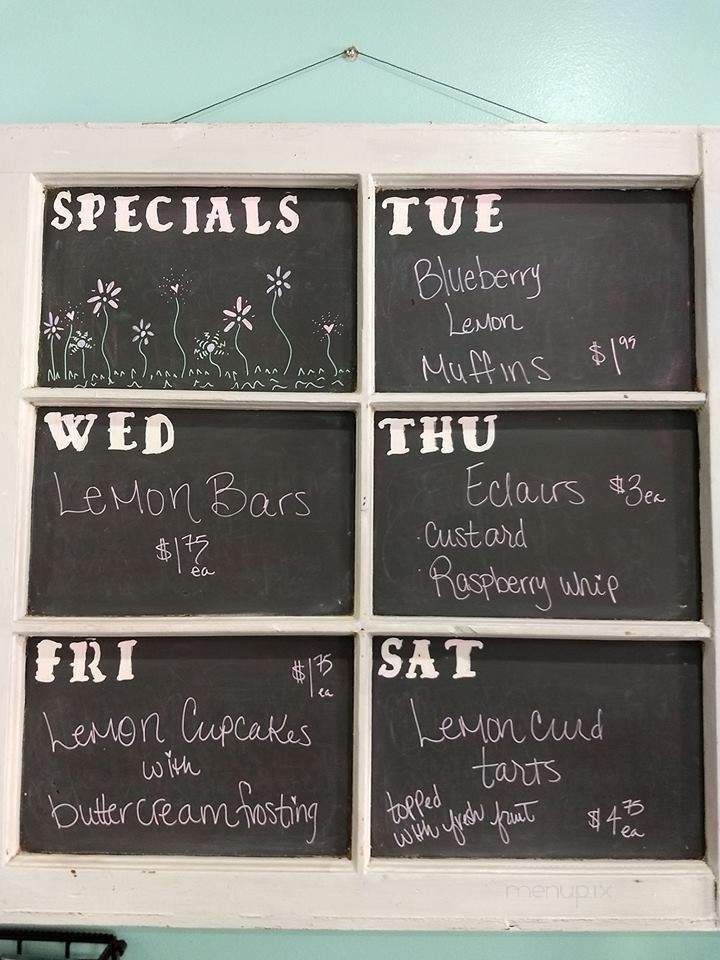 SPECIALS
TUE
Blueberry
Lemon
Muffins $1.95
WED
Lemon Bars
$1.75
ea
THU
Eclairs $3 ea
· Custard
· Raspberry whip
FRI
$1.75
ea
Lemon Cupcakes
with
buttercream frosting
SAT
Lemon Curd
tarts
topped
with fresh fruit
$4.75
ea
menupix